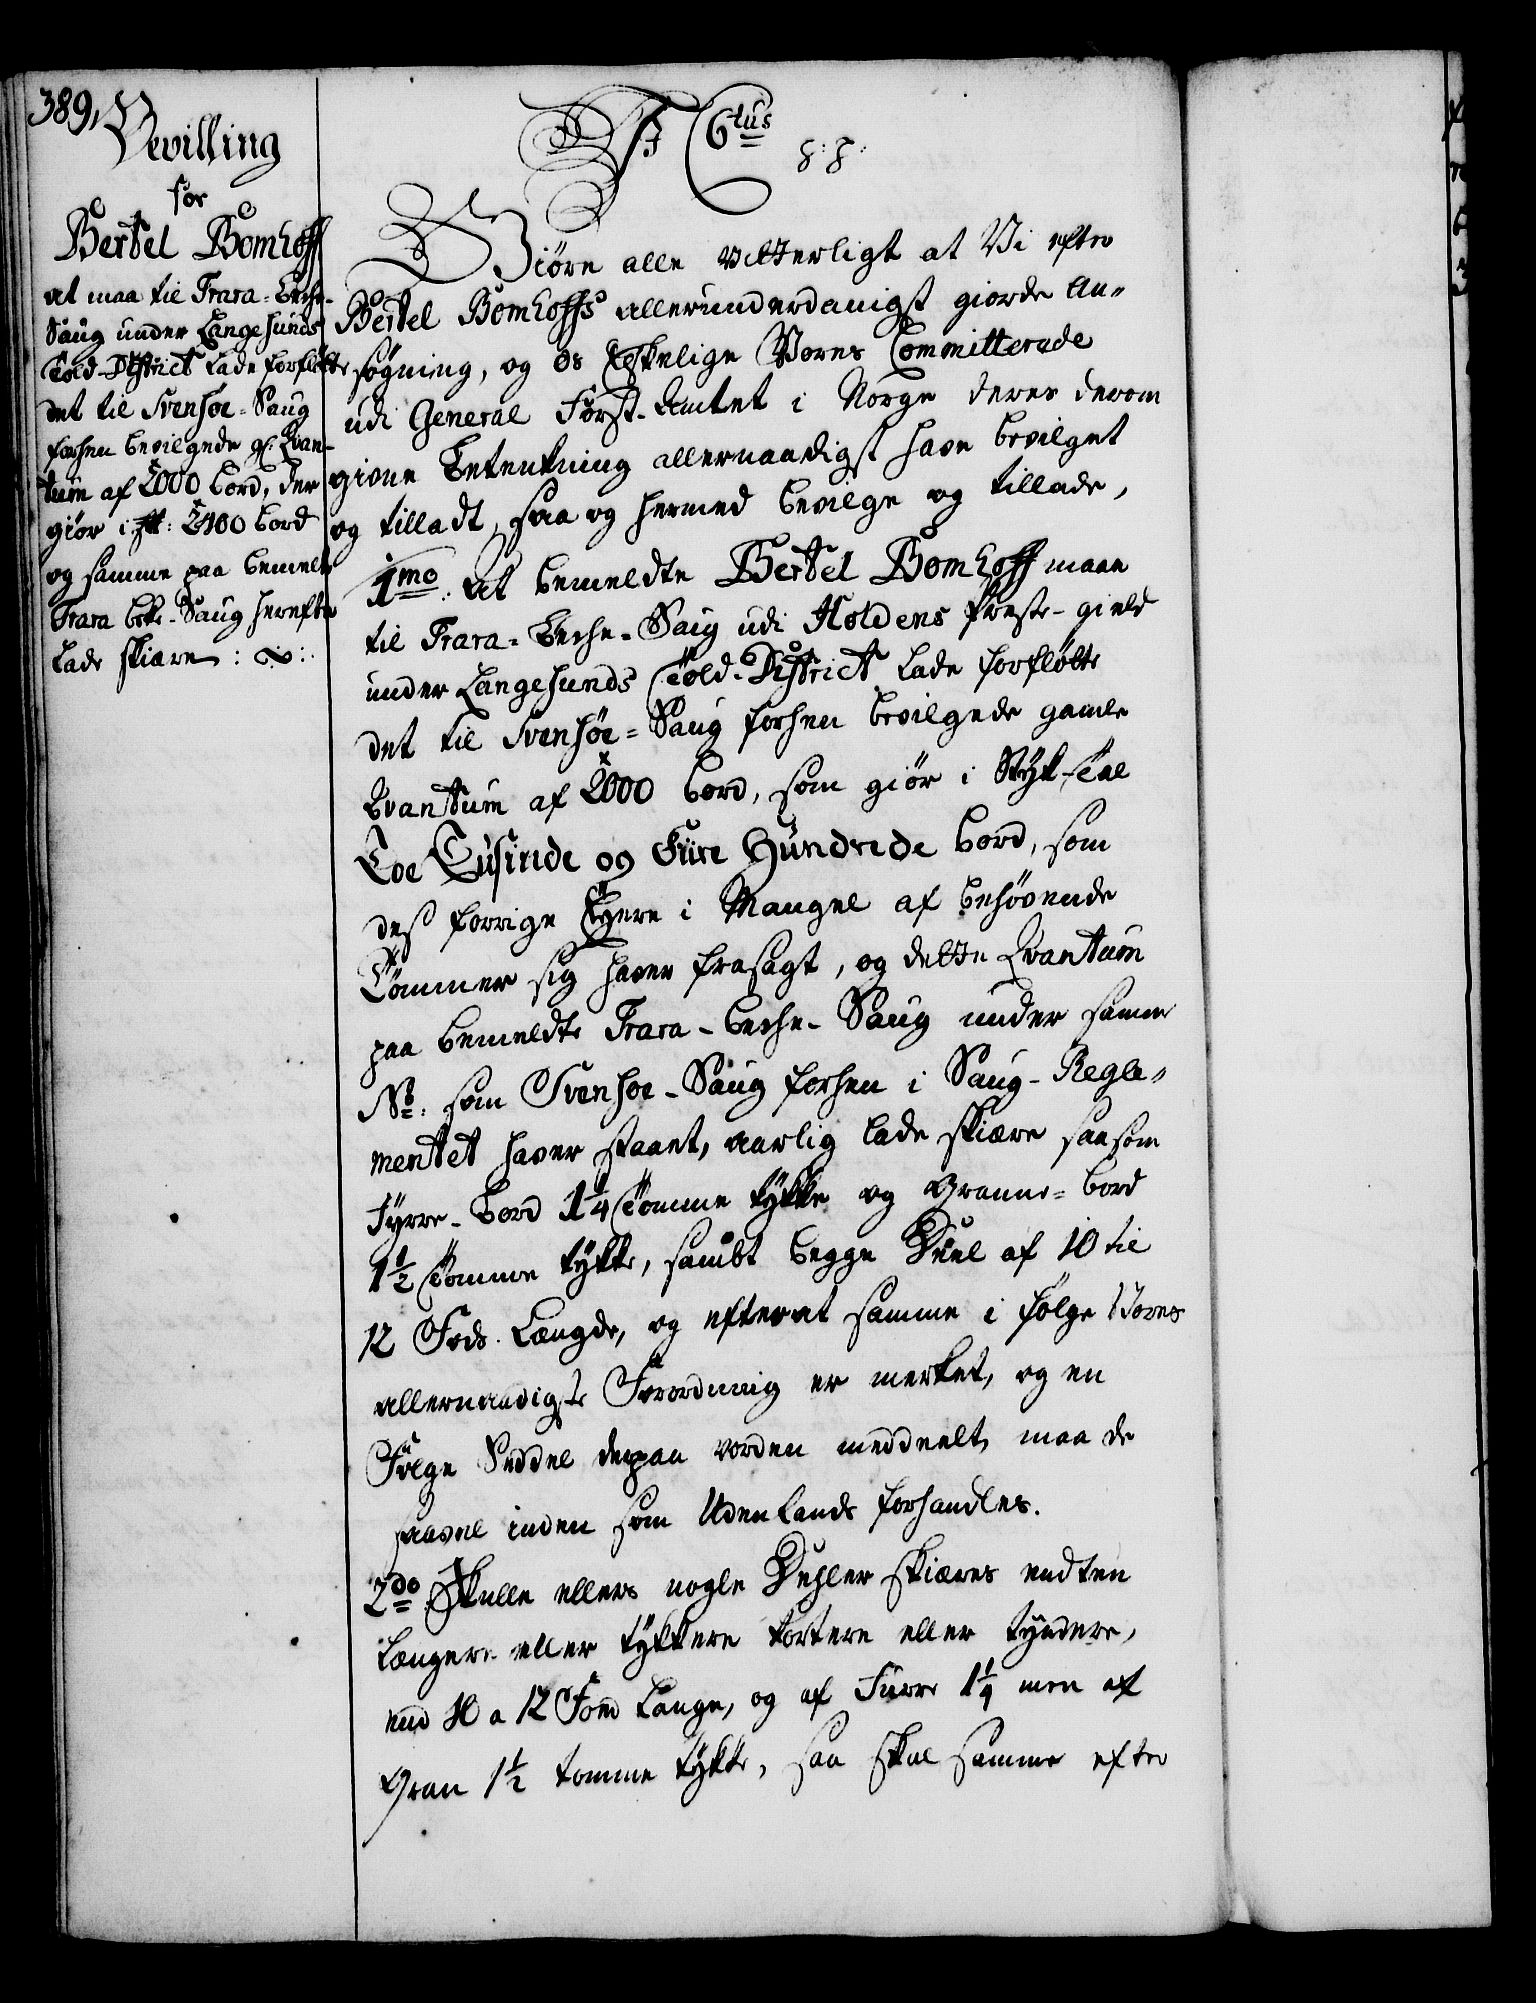 389,
Bevilling
for
Bertel Bomhoff
at maa til Trara-Beche-
Saug under Langesunds
Told-District lade forfløtte
det til Svenhøe-Saug
forhen bevilgede gl. Qvan-
tum af 2000 bord, der
giør i st: 2400 bord
og samme paa bemelte
Trara Beke-Saug herefter
lade skiære
F 6tus
Giøre alle vitterligt at Vi efter
Bertel Bomhoffs allerunderdanigst giorde An-
søgning, og os Elskelige Vores Committerede
udi General Forst-Amtet i Norge deres derom
givne Betenkning allernaadigst have bevilget
og tilladt, saa og hermed bevilge og tillade,
1mo: At bemeldte Bertel Bomhoff maae
til Trara-Beche-Saug udi Holdens Præste-gield
under Langesunds Told-District lade forfløtte
det til Svenhøe-Saug forhen bevilgede gamle
Qvantum af 2000 bord, som giør i Styk-tal
Toe Tusinde og Fiire Hundrede bord, som
des forrige Eyere i Mangel af behøvende
Tømmer sig haver frasagt, og dette Qvantum
paa bemeldte Trara-beche-Saug under samme
No: som Svenhoe-Saug forhen i Saug-Regle-
mentet haver staaet, aarlig lade skiære saasom
Fyrre-bord 1 1/4 Tomme tykke og Granne-bord
1 1/2 Tomme tykke, sambt begge Deel af 10 til
12 Fods Længde, og efter at samme i følge Vores
allernaadigste Forordning er merket, og en
Følge Seddel derpaa vorden meddeelt, maa de
saavel inden som Udenlands forhandles.
2do Skulle ellers nogle Dehler skiæres endten
længere eller tykkere kortere eller tyndere,
end 10 a 12 Foed lange, og af Furre 1 1/4 men af
Gran 1 1/2 tomme tykke, saa skal samme efter